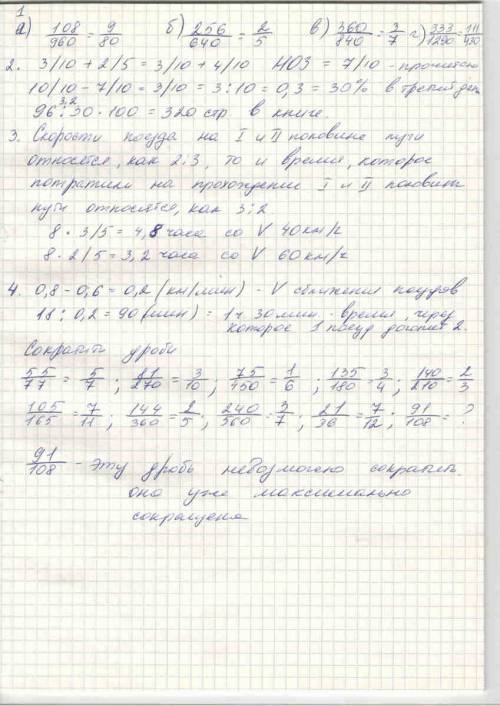 1
а) 108/960 = 9/80 б) 256/640 = 2/5 в) 360/840 = 3/7 г) 333/1290 = 111/430
2. 3/10 + 2/5 = 3/10 + 4/10 НОЗ = 7/10 - прочитано
10/10 - 7/10 = 3/10 = 3:10 = 0,3 = 30% в третий день
96 : 30 · 100 = 320 стр. в книге
3,2
3. Скорости поезда на I и II половине пути
относятся, как 2:3, то и время, которое
потратили на прохождение I и II половины
пути относятся, как 3:2
8 · 3/5 = 4,8 часа со V 40 км/г
8 · 2/5 = 3,2 часа со V 60 км/г
4. 0,8 - 0,6 = 0,2 (км/мин) - V сближения поездов
18 : 0,2 = 90 (мин) = 1ч 30 мин. - время, через
которое 1 поезд догонит 2.
Сократить дроби
55/77 = 5/7 ; 81/270 = 3/10 ; 75/450 = 1/6 ; 135/180 = 3/4 ; 140/210 = 2/3
105/165 = 7/11 ; 144/360 = 2/5 ; 240/560 = 3/7 ; 21/36 = 7/12 ; 91/108 = ?
91/108 - эту дробь невозможно сократить.
она уже максимально
сокращена